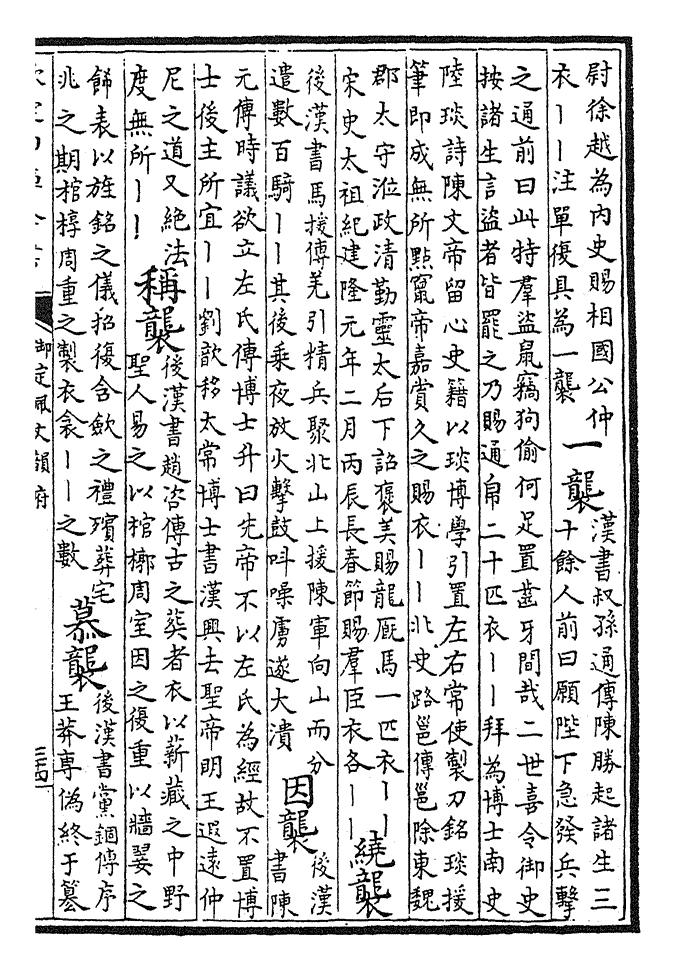 尉徐越為内史賜相國公仲
衣丨丨注單復具為一襲
一襲
漢書叔孫通傳陳勝起諸生三
十餘人前曰願陛下急發兵擊
之通前曰此特羣盜鼠竊狗偷何足置齒牙間哉二世喜令御史
按諸生言盜者皆罷之乃賜通帛二十匹衣丨丨拜為博士南史
陸琰詩陳文帝留心史籍以琰博學引置左右常使製刀銘琰援
筆即成無所點竄帝嘉賞久之賜衣丨丨北史路邕傳邕除東魏
郡太守涖政清勤靈太后下詔褒美賜龍廐馬一匹衣丨丨
宋史太祖紀建隆元年二月丙辰長春節賜羣臣衣各丨丨
繞襲
後漢書馬援傳羌引精兵聚北山上援陳軍向山而分
遣數百騎丨丨其後乘夜放火擊鼓叫噪虜遂大潰
因襲
後漢
書陳
元傳時議欲立左氏傳博士升曰先帝不以左氏為經故不置博
士後主所宜丨丨劉歆移太常博士書漢興去聖帝明王遐遠仲
尼之道又絶法
度無所丨丨
稱襲
後漢書趙咨傳古之葬者衣以薪藏之中野
聖人易之以棺槨周室因之復重以牆翣之
飾表以旌銘之儀招復含斂之禮殯葬宅
兆之期棺椁周重之製衣衾丨丨之數
慕襲
後漢書黨錮傳序
王莽專偽終于篡
御定佩文韻府